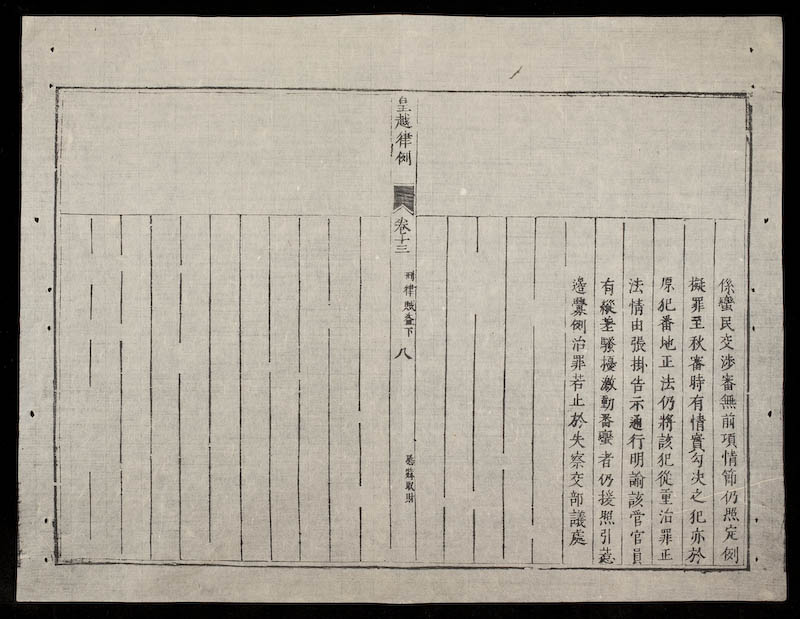 係蠻民交涉審無前項情節仍照定例
擬罪至秋審時有情實勾决之犯亦於
原犯番地正法仍將該犯從重治罪正
法情由張掛告示通行明諭該管官員
有縱差騷擾激動番蠻者仍援照引惹
邊釁例治罪若止於失察交部議處
皇越律例
卷十三
刑律賊盜下
八
恐嚇取財